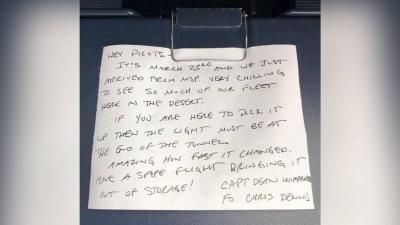 HEY PILOTS -
IT'S MARCH 23RD AND WE JUST
ARRIVED FROM MSP. VERY CHILLING
TO SEE SO MUCH OF OUR FLEET
HERE IN THE DESERT.
IF YOU ARE HERE TO PICK IT
UP THEN THE LIGHT MUST BE AT
THE END OF THE TUNNEL.
AMAZING HOW FAST IT CHANGED.
HAVE A SAFE FLIGHT BRINGING IT
OUT OF STORAGE!
CAPT DEAN
FO CHRIS DENNIS